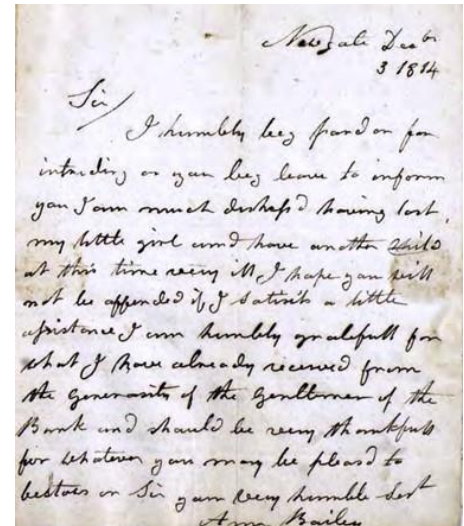 Newgate Decbr
3 1814
Sir
I humbly beg pardon for
intruding on you beg leave to inform
you I am much distress'd having lost
my little girl and have another child
at this time very ill, I hope you will
not be offended if I solicit a little
assistance I am humbly gratefull for
what I have already received from
the Generosity of the Gentlemen of the
Bank and should be very thankfull
for whatever you may be pleasd to
bestow on Sir your very humble Sert
Ann Bailey